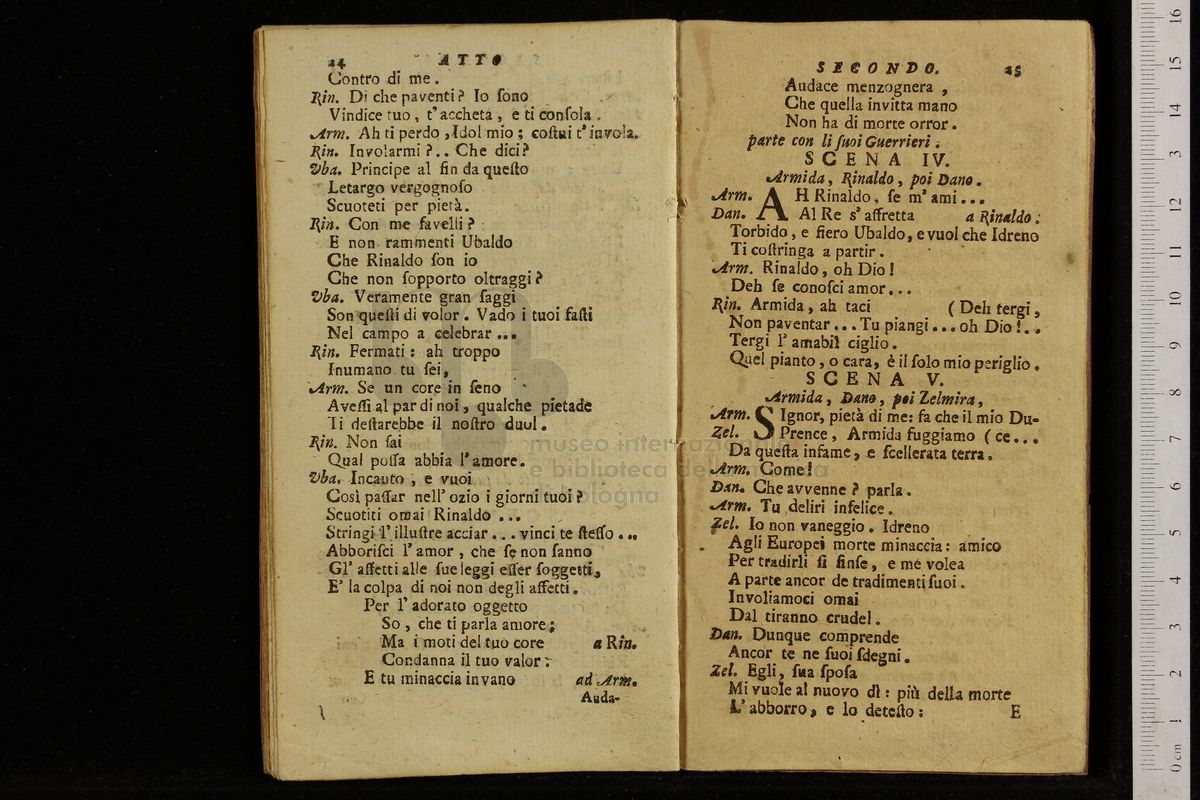 24 ATTO
Contro di me.
Rin. Di che paventi? Io ſono
Vindice tuo, t' accheta, e ti conſola.
Arm. Ah ti perdo, Idol mio; coſtui t' invola.
Rin. Involarmi?.. Che dici?
Vba. Principe al fin da queſto
Letargo vergognoſo
Scuoteti per pietà.
Rin. Con me favelli?
E non rammenti Ubaldo
Che Rinaldo ſon io
Che non ſopporto oltraggi?
Vba. Veramente gran ſaggi
Son queſti di volor. Vado i tuoi faſti
Nel campo a celebrar...
Rin. Fermati: ah troppo
Inumano tu ſei,
Arm. Se un core in ſeno
Aveſſi al par di noi, qualche pietade
Ti deſtarebbe il noſtro duol.
Rin. Non ſai
Qual poſſa abbia l' amore.
Vba. Incauto, e vuoi
Così paſſar nell' ozio i giorni tuoi?
Scuotiti omai Rinaldo...
Stringi l' illuſtre acciar... vinci te ſteſſo...
Abboriſci l' amor, che ſe non ſanno
Gl' affetti alle ſue leggi eſſer ſoggetti,
E' la colpa di noi non degli affetti.
Per l' adorato oggetto
So, che ti parla amore;
Ma i moti del tuo core a Rin.
Condanna il tuo valor:
E tu minaccia invano ad Arm.
Auda-
SECONDO. 25
Audace menzognera,
Che quella invitta mano
Non ha di morte orror.
parte con li ſuoi Guerrieri.
SCENA IV.
Armida, Rinaldo, poi Dano.
Arm. AH Rinaldo, ſe m' ami...
Dan. Al Re s' affretta a Rinaldo.
Torbido, e fiero Ubaldo, e vuol che Idreno
Ti coſtringa a partir.
Arm. Rinaldo, oh Dio!
Deh ſe conoſci amor...
Rin. Armida, ah taci (Deh tergi,
Non paventar... Tu piangi... oh Dio!..
Tergi l' amabil ciglio.
Quel pianto, o cara, è il ſolo mio periglio.
SCENA V.
Armida, Dano, poi Zelmira,
Arm. SIgnor, pietà di me: fa che il mio Du-
Zel. Prence, Armida fuggiamo (ce...
Da queſta infame, e ſcellerata terra.
Arm. Come!
Dan. Che avvenne? parla.
Arm. Tu deliri infelice.
Zel. Io non vaneggio. Idreno
Agli Europei morte minaccia: amico
Per tradirli ſi finſe, e me volea
A parte ancor de tradimenti ſuoi.
Involiamoci omai
Dal tiranno crudel.
Dan. Dunque comprende
Ancor te ne ſuoi ſdegni.
Zel. Egli, ſua ſpoſa
Mi vuole al nuovo dì: più della morte
L' abborro, e lo deteſto:
E
museo internazionale
e biblioteca de a
bologna